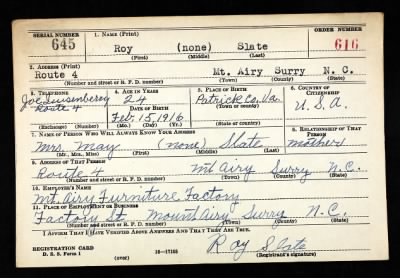 SERIAL NUMBER 1. NAME (Print) ORDER NUMBER
645 Roy (none) Slate 616
(First) (Middle) (Last)
2. ADDRESS (Print)
Route 4 Mt. Airy Surry N. C.
(Number and street or R. F. D. number) (Town) (County) (State)
3. TELEPHONE 4. AGE IN YEARS 5. PLACE OF BIRTH 6. COUNTRY OF CITIZENSHIP
Joe Quesenberry 24 Patrick Co. Va.
Route 4 DATE OF BIRTH (Town or county) U.S.A.
Feb. 15, 1916
(Exchange) (Number) (Mo.) (Day) (Yr.) (State or country)
7. NAME OF PERSON WHO WILL ALWAYS KNOW YOUR ADDRESS 8. RELATIONSHIP OF THAT PERSON
Mrs. May (none) Slate mother
(Mr., Mrs., Miss) (First) (Middle) (Last)
9. ADDRESS OF THAT PERSON
Route 4 Mt Airy Surry N.C.
(Number and street or R. F. D. number) (Town) (County) (State)
10. EMPLOYER'S NAME
Mt. Airy Furniture Factory
11. PLACE OF EMPLOYMENT OR BUSINESS
Factory St. Mount Airy Surry N.C.
(Number and street or R. F. D. number) (Town) (County) (State)
I AFFIRM THAT I HAVE VERIFIED ABOVE ANSWERS AND THAT THEY ARE TRUE.
REGISTRATION CARD Roy Slate
D. S. S. Form 1 (over) 16—17105 (Registrant's signature)